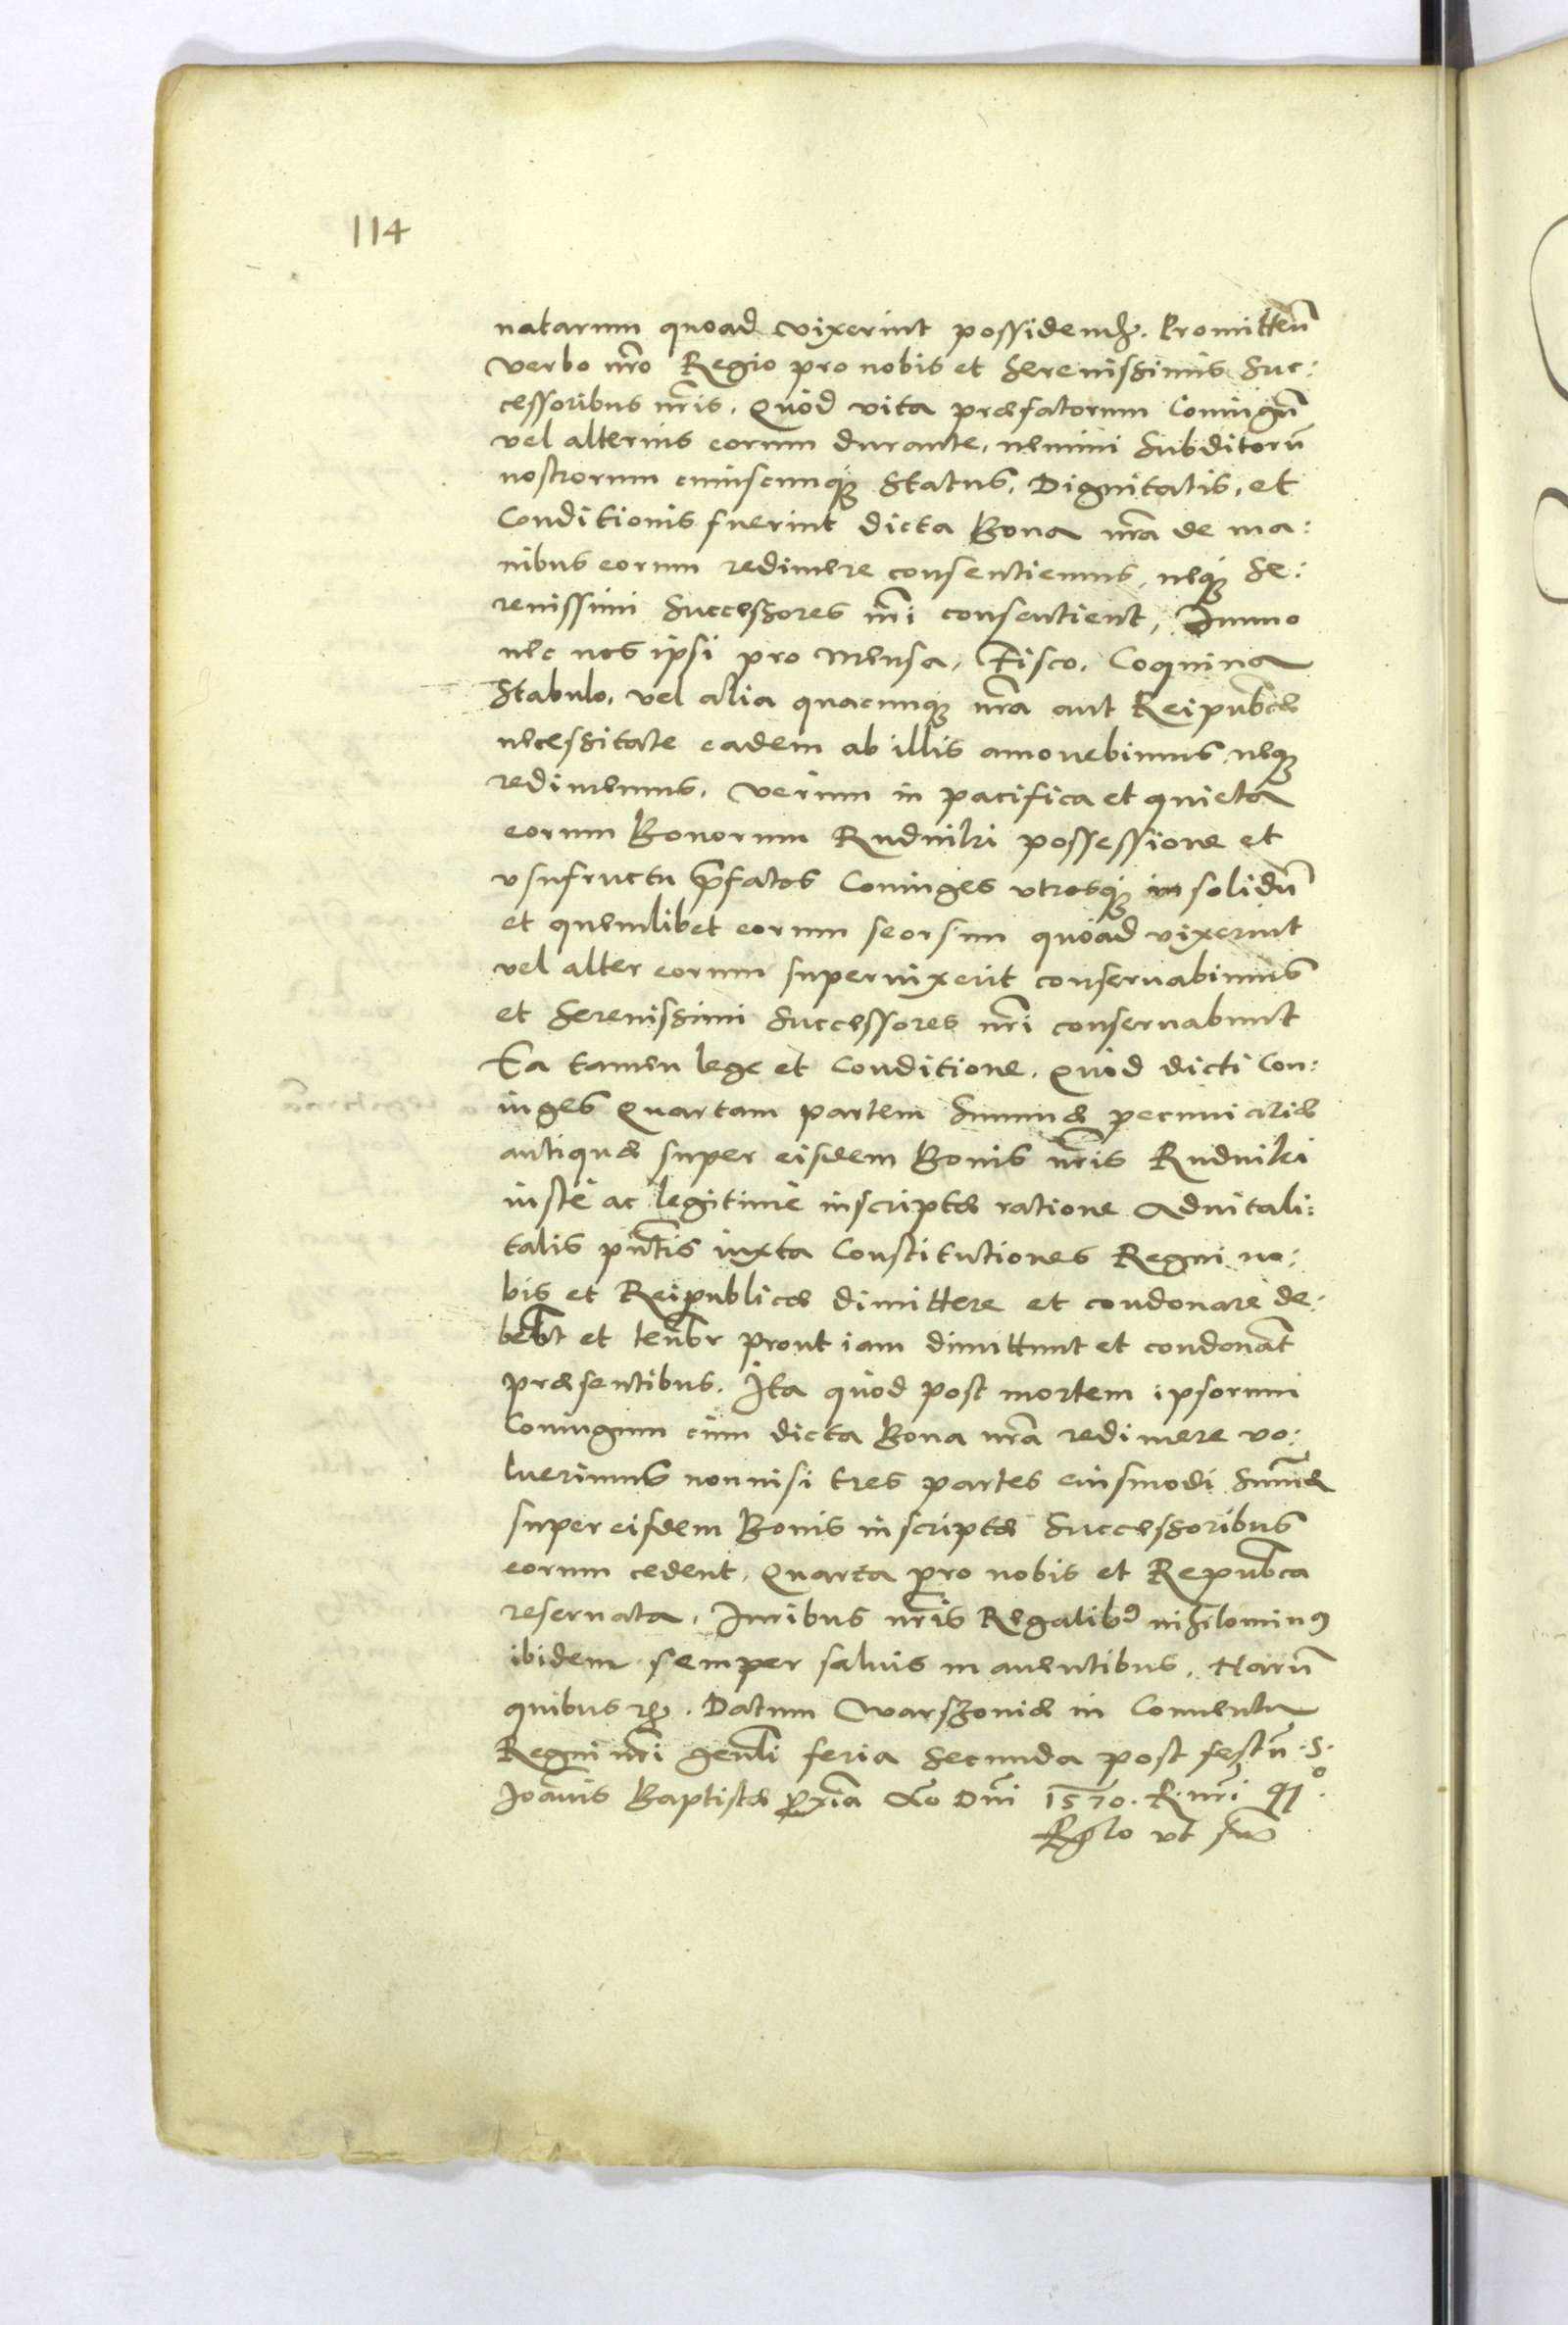 114
natarum quoad vixerint possidendȝ. Promitteñ
verbo nr̃o Regio pro nobis et Serenissimis Suc:
cessoribus nr̃is. Quod vita præfatorum Coniugũ
vel alterius eorum durante, nemini Subditorũ
nostrorum cuiuscunqȝ Status, Dignitatis, et
Conditionis fuerint dicta Bona nr̃a de ma:
nibus eorum redimere consentiemus, neqȝ Se:
renissimi Successores nr̃i consentient, Immo
nec nos ipsi pro Mensa, Fisco, Coquina
Stabulo, vel alia quacunqȝ nr̃a aut Reipub̃cæ
necessitate eadem ab illis amouebimus neqȝ
redimemus. Verum in pacifica et quieta
eorum Bonorum Rudniki possessione et
vsufructu p̃fatos Coniuges vtrosqȝ in solidũ
et quemlibet eorum seorsim quoad vixerint
vel alter eorum superuixerit conseruabimus
et Serenissimi Successores nr̃i conseruabunt
Ea tamen lege et Conditione. Quod dicti Con:
iuges Quartam partem Summæ pecuniariæ
antiquæ super eisdem Bonis nr̃is Rudniki
iustè ac legitimè inscriptæ ratione Aduitali:
talis pñtis iuxta Constitutiones Regni no:
bis et Reipublicæ dimittere et condonare de:
beb̃t et teneb̃r prout iam dimittunt et condonãt
præsentibus. Ita quod post mortem ipsorum
Coniugum cùm dicta Bona nr̃a redimere vo:
luerimus nonnisi tres partes eiusmodi Sum̃æ
super eisdem Bonis inscriptæ Successoribus
eorum cedent, Quarta pro nobis et Repub̃ca
reseruata, Iuribus nr̃is Regalibꝰ nihilominꝰ
ibidem semper saluis manentibus. Harũ
quibus ꝛc. Datum Warszouiæ in Conuentu
Regni nr̃i gen̄li feria Secunda post festũ S.
Joannis Baptistæ pxĩa Ao Dñi 1570. R. nr̃i 41°.
Rel̃o vt sup̃